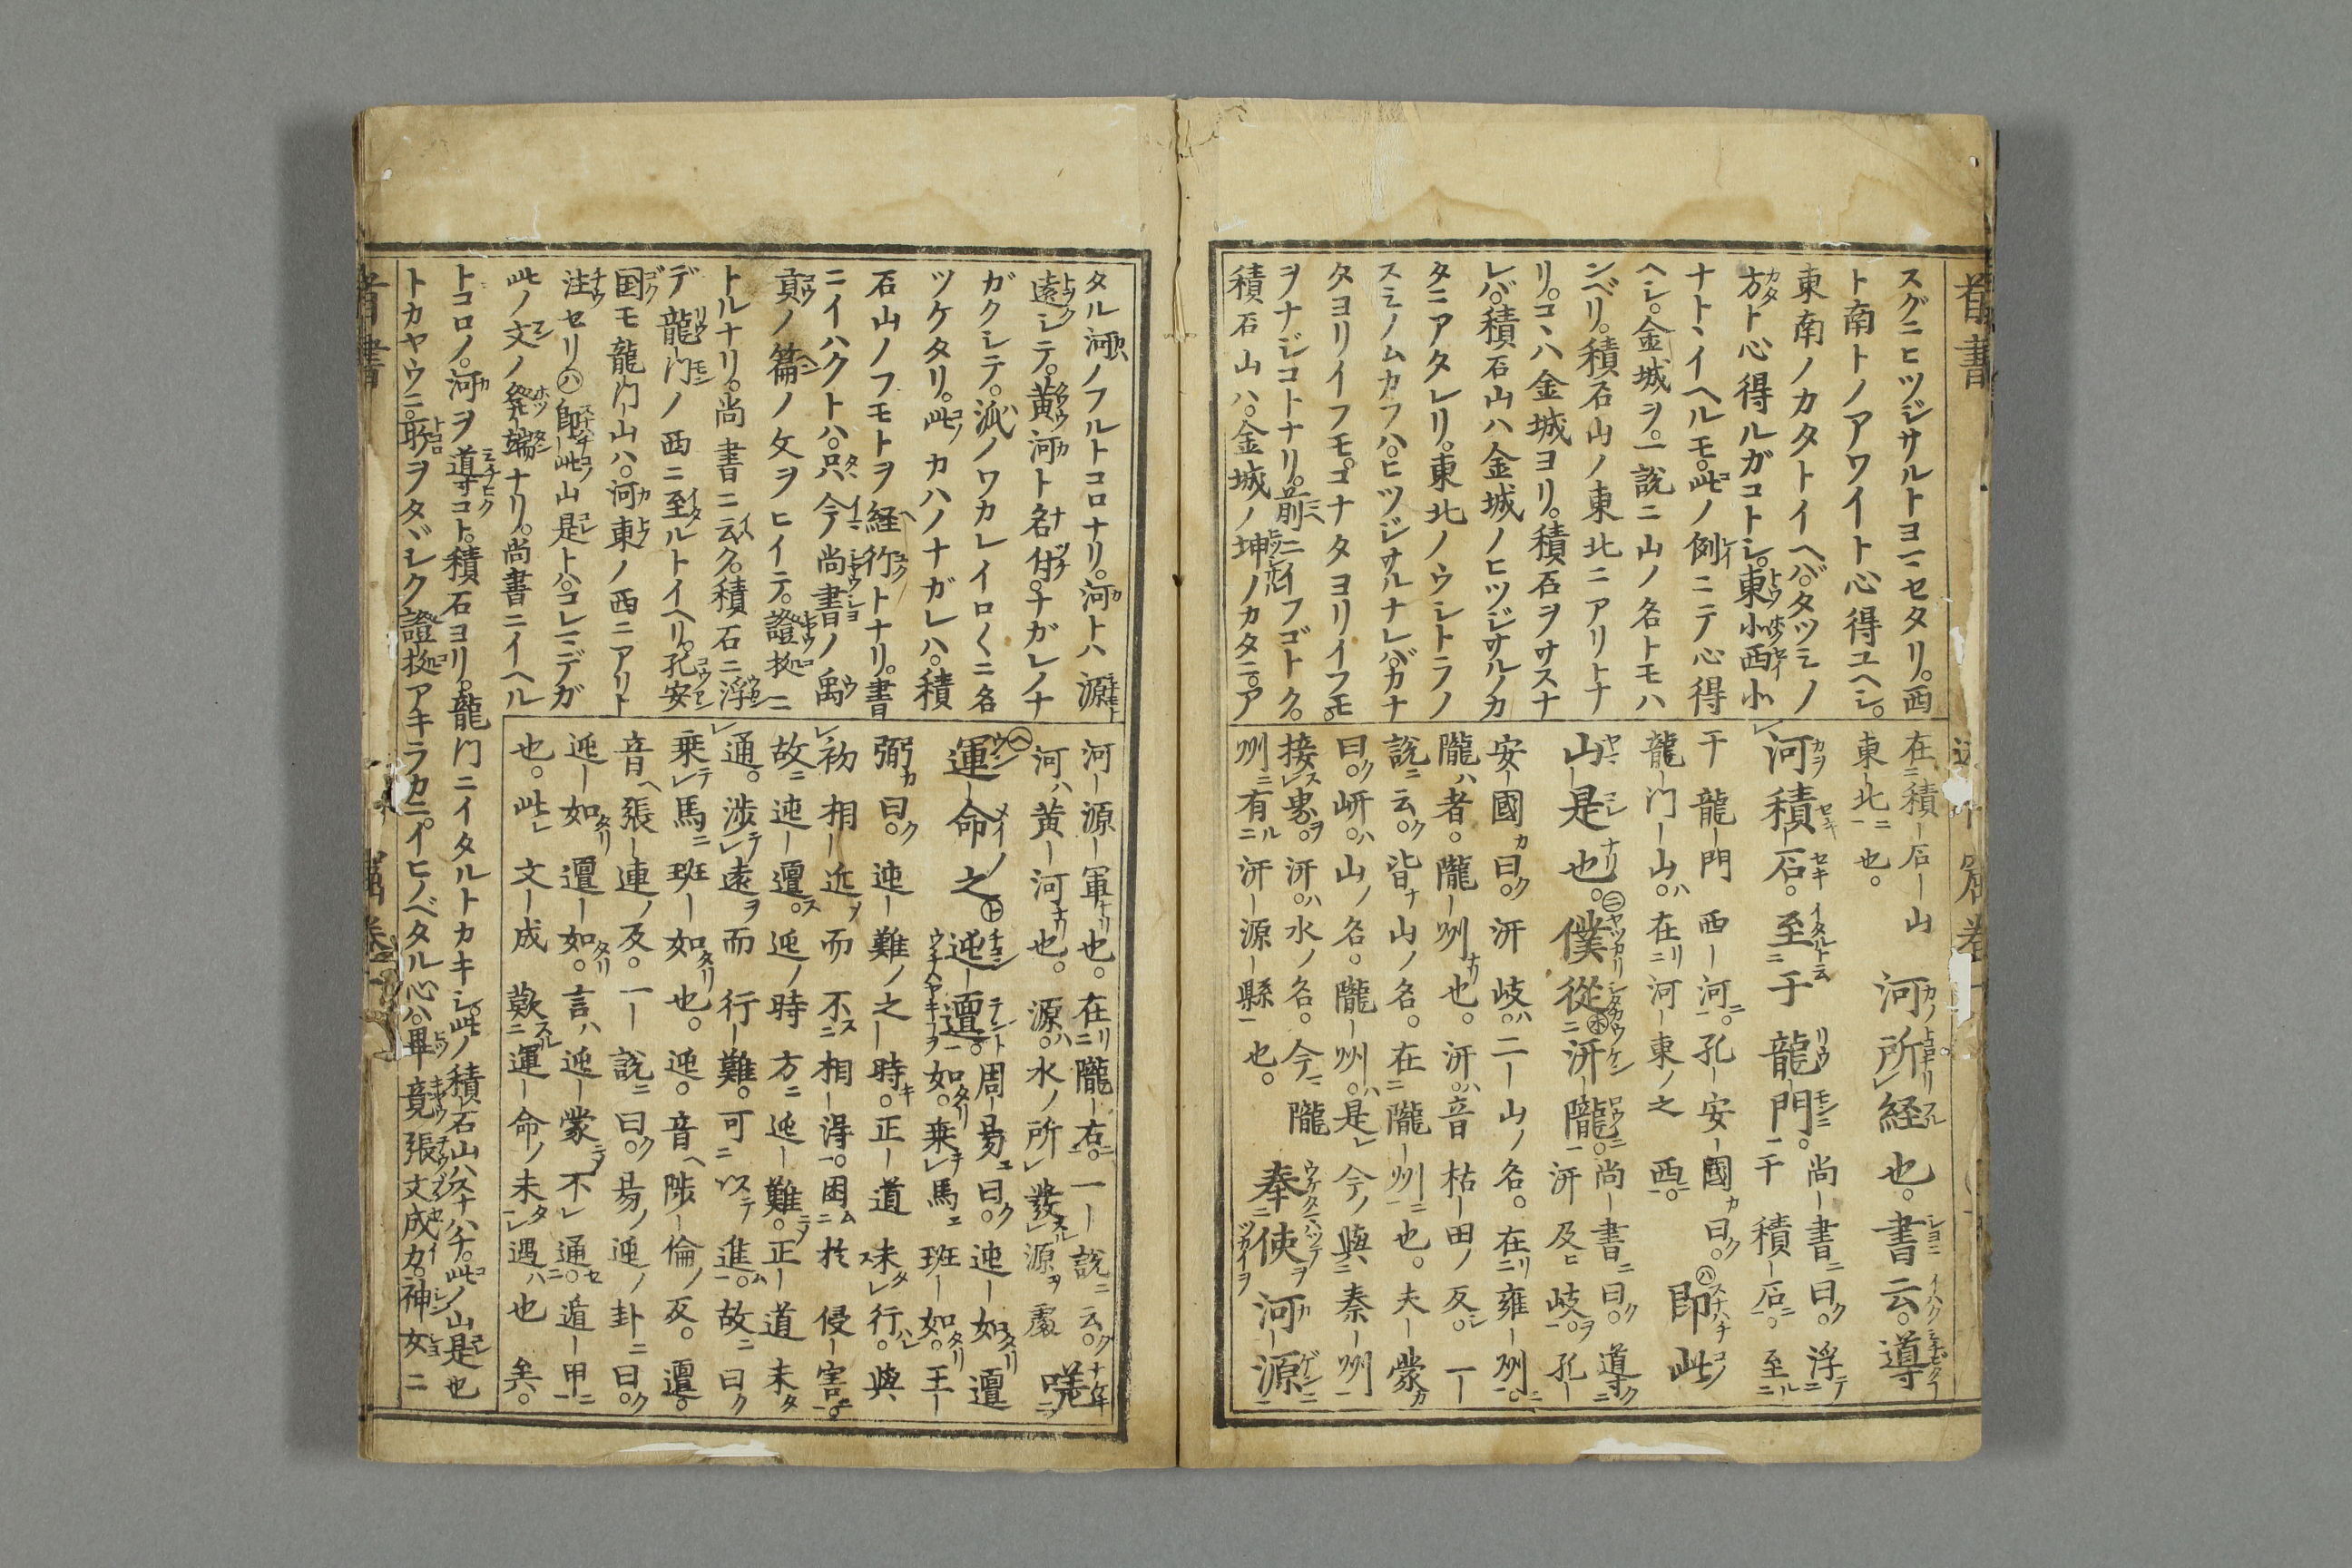 スグニヒツジサルトヨニセタリ。西
ト南トノアワイト心得ユヘシ。
東南ノカタトイヘバ。タツミノ
方ト心得ルガコトシ。東小西小
ナト、イヘルモ。此ノ例ニテ心得
ヘシ。金城ヲ。一説ニ山ノ名トモハ
ンベリ。積石山ノ東北ニアリトナ
リ。コヽハ金城ヨリ。積石ヲサスナ
レバ。積石山ハ金城ノヒツジサルノカ
タニアタレリ。東北ノウシトラノ
スミノムカフハ。ヒツジサルナレバ。カナ
タヨリイフモ。コナタヨリイフモ。
ヲナジコトナリ。前ニイフゴトク。
積石山ハ。金城ノ坤ノカタニ。ア
在積石山 河所経也。書云。導
東北也。
河積石。至于龍門。尚書曰。浮
于積石。至
于龍門西河。孔安國曰。即此
龍門山。在河東之西。
山是也。僕從汧隴。尚書曰。導
汧及岐。孔
安國曰。汧岐。二山ノ名。在雍州。
隴者。隴州也。汧。音枯田ノ反。一
説云。皆山ノ名。在隴州也。夫蒙
曰。岍。山ノ名。隴州。是今ノ與秦州
接界。汧。水ノ名。今隴
州有汧源縣也。
奉使河源
タル河ノフルトコロナリ。河トハ源
遠シテ。黄河ト名付。ナガレノナ
ガクシテ。派ノワカレイロ〱ニ名
ツケタリ。此カハノナガレハ。積
石山ノフモトヲ経行トナリ。書
ニイハクトハ。只今尚書ノ禹
貢ノ篇ノ文ヲヒイテ。證拠ニ
トルナリ。尚書ニ云ク。積石ニ浮
デ龍門ノ西ニ至ルトイヘリ。孔安
国モ龍門山ハ。河東ノ西ニアリト
注セリ㋩即此山是トハ。コレミデガ
此ノ文ノ発端ナリ。尚書ニイヘル
トコロノ。河ヲ導コト。積石ヨリ。龍門ニイタルトカキシ。此ノ積石山ハスナハチ。此ノ山是也
トカヤウニ。所ヲタヾシク證拠アキラカニ。イヒノベタル心ハ。畢竟張文成カ。神女ニ
河源軍也。在隴右。一説云。嘆
河ハ黄河也。源。水ノ所發源處
運命之迍邅。周易曰。迍如邅
如。乗馬班如。王
弼曰。迍難ノ之時。正道未行。與
初相近而不相得。困於侵害。
故迍邅。迍ノ時方迍難。正道未
通。渉遠而行難。可以進。故曰
乗馬班如也。迍。音陟倫ノ反。邅。
音張連ノ反。一説曰。易ノ迍ノ卦曰。
迍如邅如。言ハ迍蒙不通。遁甲
也。此文成歎運命ノ未遇也矣。